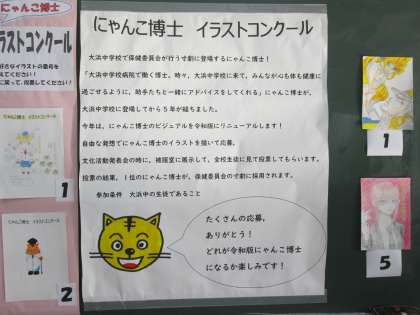 にゃんこ博士
ラストコンクール
にゃんこ博士 イラストコンクール
大浜中学校で保健委員会が行う寸劇に登場するにゃんこ博士！
「大浜中学校病院で働く博士。時々、大浜中学校に来て、みんなが心も体も健康に
過ごせるように、助手たちと一緒にアドバイスをしてくれる」にゃんこ博士が、
大浜中学校に登場してから５年が経ちました。
今年は、にゃんこ博士のビジュアルを令和版にリニューアルします！
自由な発想でにゃんこ博士のイラストを描いて応募。
文化活動発表会の時に、被服室に展示して、全校生徒に見て投票してもらいます。
投票の結果、１位のにゃんこ博士が、保健委員会の寸劇に採用されます。
参加条件 大浜中の生徒であること
たくさんの応募、
ありがとう！
どれが令和版にゃんこ博士
になるか楽しみです！
にゃんこ博士 イラストコンクール
1
にゃんこ博士 イラストコンクール
2
1
5